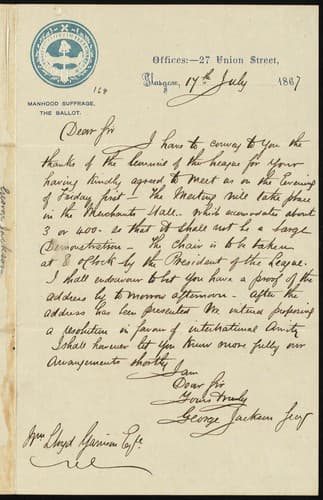 Offices:—27 Union Street,
Glasgow, 17th July 1867
168
MANHOOD SUFFRAGE,
THE BALLOT.
Dear Sir
I have to convey to you the
thanks of the Council of the League for your
having kindly agreed to meet us on the Evening
of Friday first — The Meeting will take place
in the Merchants Hall. which accomodates about
3 or 400 - so that it shall not be a large
Demonstration — The Chair is to be taken
at 8 oClock by the President of the League.
I shall endeavour to let you have a proof of the
address by to morrow afternoon - after the
address has been presented We intend proposing
a resolution in favour of international Amity
I shall however let you know more fully our
arrangements shortly
I am
Dear Sir
Yours truly
George Jackson Secy
Wm Lloyd Garrison Esqe
George Jackson